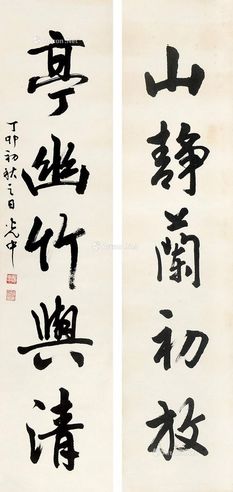 山靜蘭初放
亭幽竹與清
丁卯初秋之日 光中